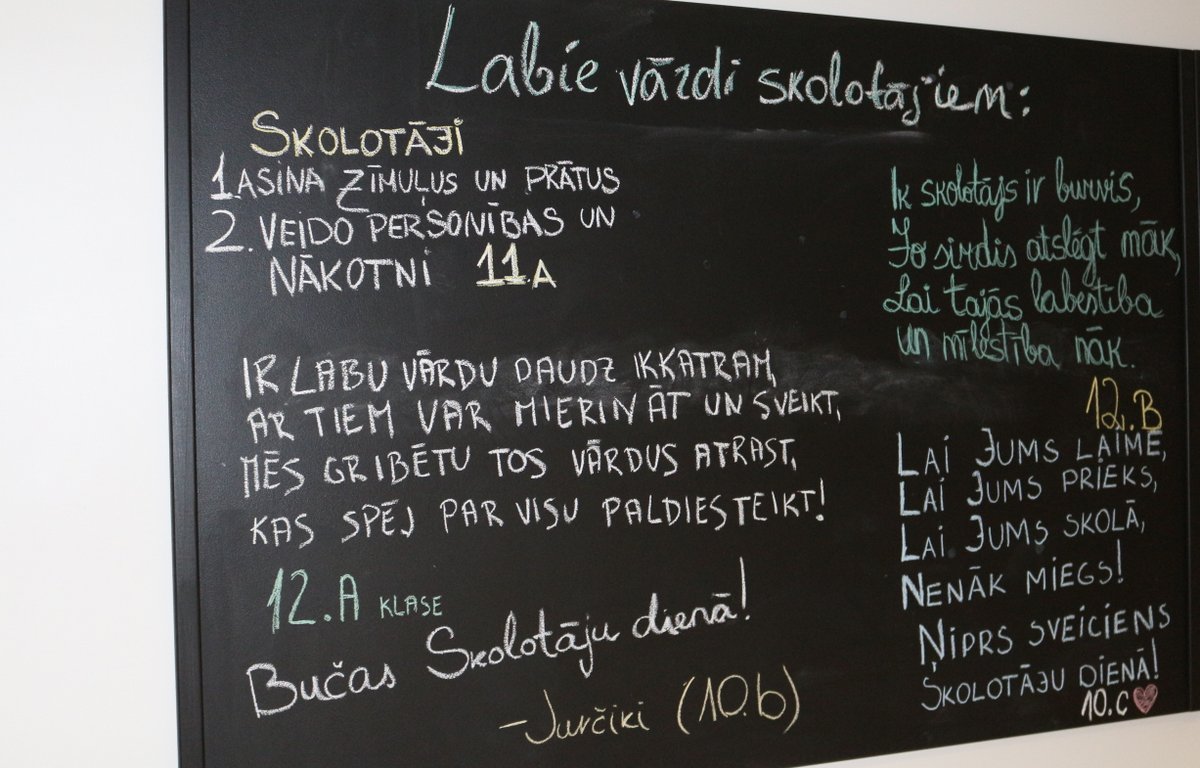 Labie vārdi skolotājiem:
SKOLOTĀJI
1 ASINA ZĪMUĻUS UN PRĀTUS
2. VEIDO PERSONĪBAS UN
NĀKOTNI 11A
IR LABU VĀRDU DAUDZ IKKATRAM,
AR TIEM VAR MIERINĀT UN SVEIKT,
MĒS GRIBĒTU TOS VĀRDUS ATRAST,
KAS SPĒJ PAR VISU PALDIES TEIKT!
12.A KLASE
Bučas Skolotāju dienā!
-Jurčiki (10.b)
Ik skolotājs ir burvis,
Jo sirdis atslēgt māk,
Lai tajās labestība
un mīlestība nāk.
12.B
LAI JUMS LAIME,
LAI JUMS PRIEKS,
LAI JUMS SKOLĀ,
NENĀK MIEGS!
ŅIPRS SVEICIENS
SKOLOTĀJU DIENĀ!
10.C